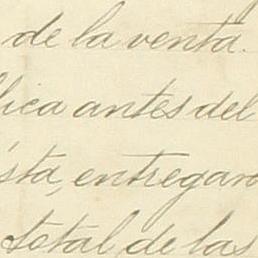 de la venta.
lica antes del
sta, entregara
total de las